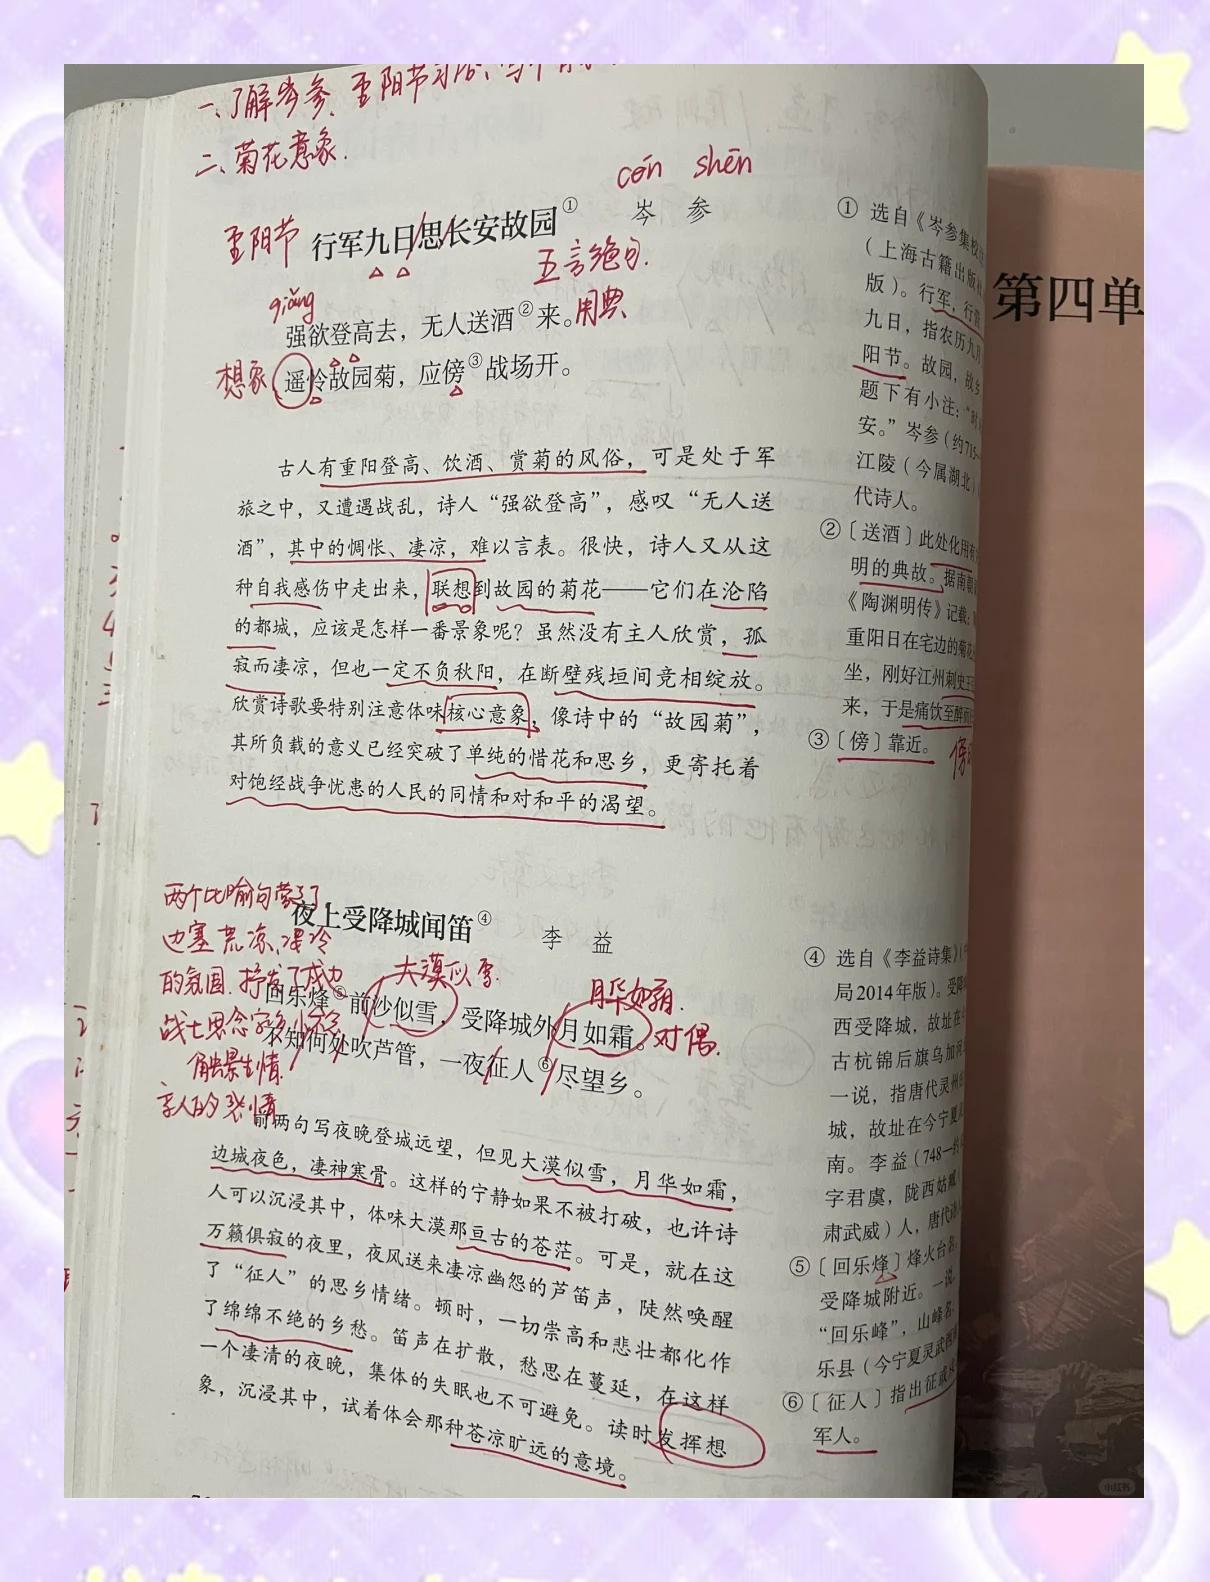 一、了解岑参、重阳节习俗、写作
二、菊花意象.
cén shēn
重阳节 行军九日思长安故园① 岑 参
五言绝句.
qiǎng
强欲登高去，无人送酒②来。用典
想象 遥怜故园菊，应傍③战场开。
古人有重阳登高、饮酒、赏菊的风俗，可是处于军
旅之中，又遭遇战乱，诗人“强欲登高”，感叹“无人送
酒”，其中的惆怅、凄凉，难以言表。很快，诗人又从这
种自我感伤中走出来，联想到故园的菊花——它们在沦陷
的都城，应该是怎样一番景象呢？虽然没有主人欣赏，孤
寂而凄凉，但也一定不负秋阳，在断壁残垣间竞相绽放。
欣赏诗歌要特别注意体味核心意象，像诗中的“故园菊”，
其所负载的意义已经突破了单纯的惜花和思乡，更寄托着
对饱经战争忧患的人民的同情和对和平的渴望。
夜上受降城闻笛④ 李 益
大漠似雪.
月华如霜.
回乐烽⑤前沙似雪，受降城外月如霜。对偶.
不知何处吹芦管，一夜征人⑥尽望乡。
两个比喻句营造了
边塞荒凉、凄冷
的氛围.抒发了戍边
战士思念家乡、怀念
触景生情.
亲人的哀情
前两句写夜晚登城远望，但见大漠似雪，月华如霜，
边城夜色，凄神寒骨。这样的宁静如果不被打破，也许诗
人可以沉浸其中，体味大漠那亘古的苍茫。可是，就在这
万籁俱寂的夜里，夜风送来凄凉幽怨的芦笛声，陡然唤醒
了“征人”的思乡情绪。顿时，一切崇高和悲壮都化作
了绵绵不绝的乡愁。笛声在扩散，愁思在蔓延，在这样
一个凄清的夜晚，集体的失眠也不可避免。读时发挥想
象，沉浸其中，试着体会那种苍凉旷远的意境。
① 选自《岑参集校
（上海古籍出版社
版）。行军，行营
九日，指农历九月
阳节。故园，故乡
题下有小注：“时
安。”岑参（约715—
江陵（今属湖北）
代诗人。
②〔送酒〕此处化用
明的典故。据南朝
《陶渊明传》记载：
重阳日在宅边的菊花
坐，刚好江州刺史王
来，于是痛饮至醉而
③〔傍〕靠近。
④ 选自《李益诗集》（中
局2014年版）。受降
西受降城，故址在
古杭锦后旗乌加河
一说，指唐代灵州
城，故址在今宁夏
南。李益（748—约
字君虞，陇西姑臧
肃武威）人，唐代
⑤〔回乐烽〕烽火台名
受降城附近。一说，
“回乐峰”，山峰名，
乐县（今宁夏灵武西
⑥〔征人〕指出征或
军人。
第四单
小红书